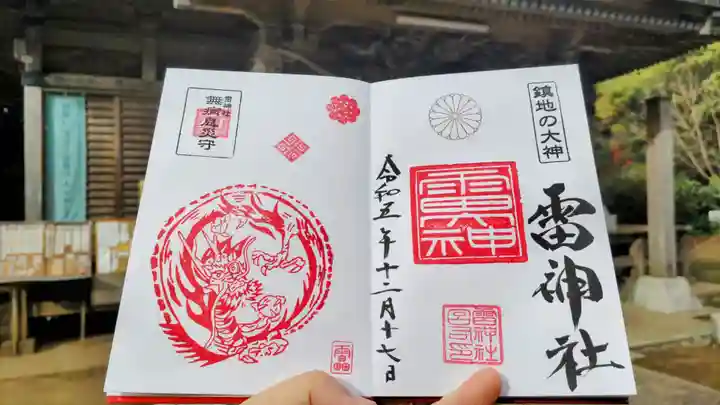 鎮地の大神
雷神社
雷神社
雷神社
令和五年十二月十七日
雷神社
無病息災守